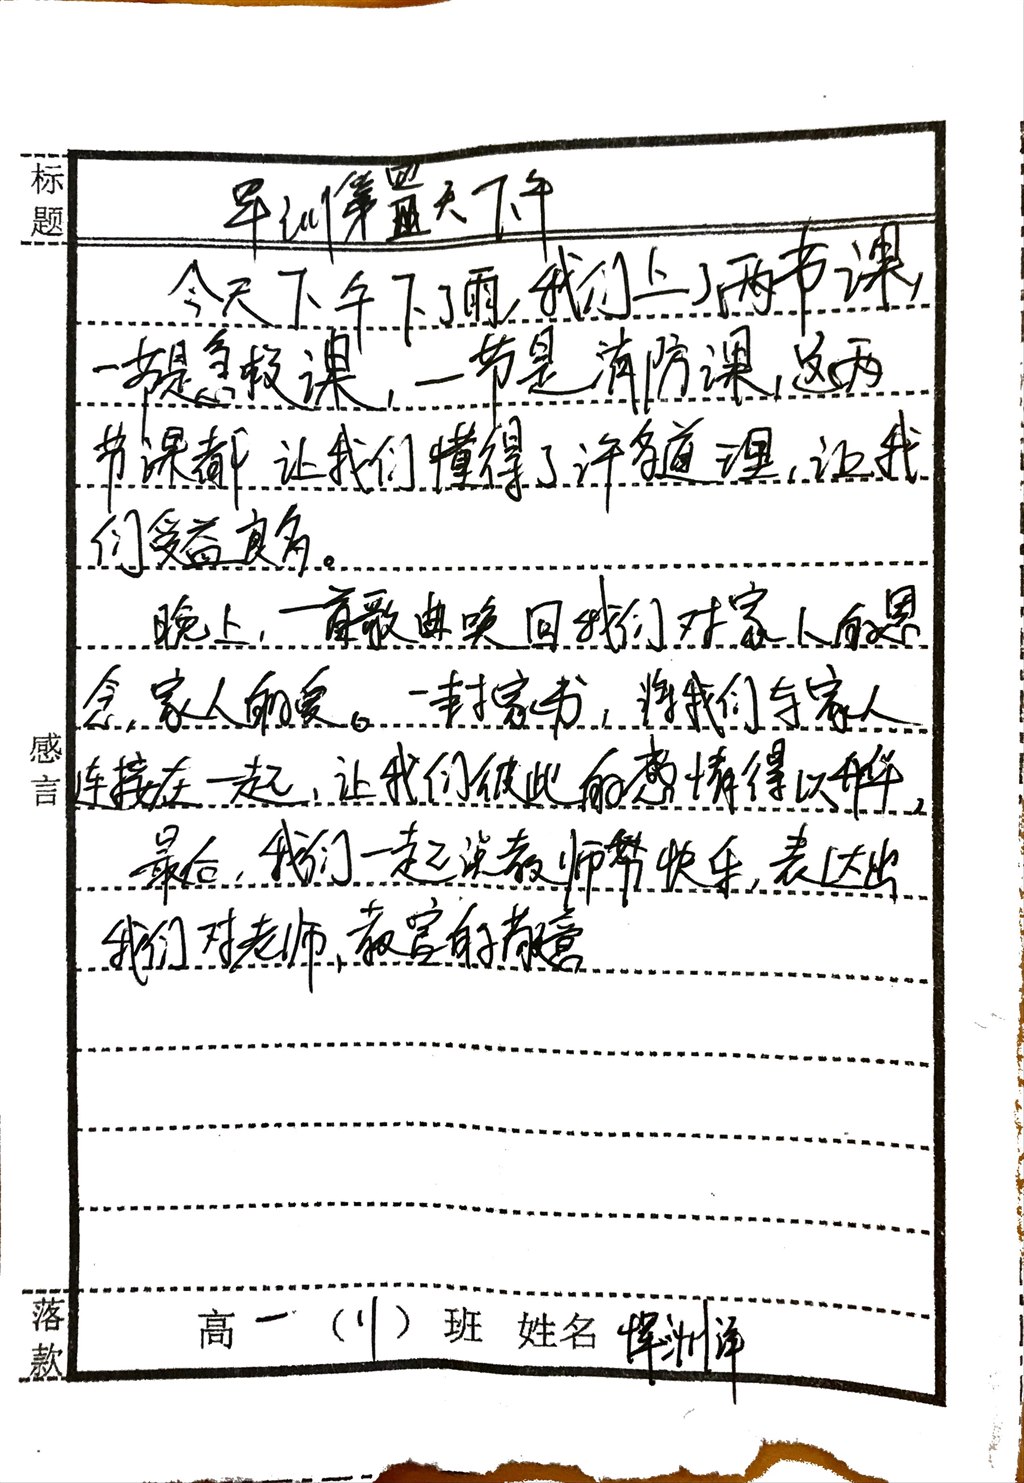 标题
军训第四天下午
今天下午下了雨,我们上了两节课,
一节是急救课,一节是消防课,这两
节课都让我们懂得了许多道理,让我
们受益良多。
晚上,一首歌曲唤回我们对家人的思
念,家人的爱。一封家书,将我们与家人
感言
连接在一起,让我们彼此的感情得以升华。
最后,我们一起说教师节快乐,表达出
我们对老师,教官的敬意
落款
高一(11)班 姓名 恽洲洋